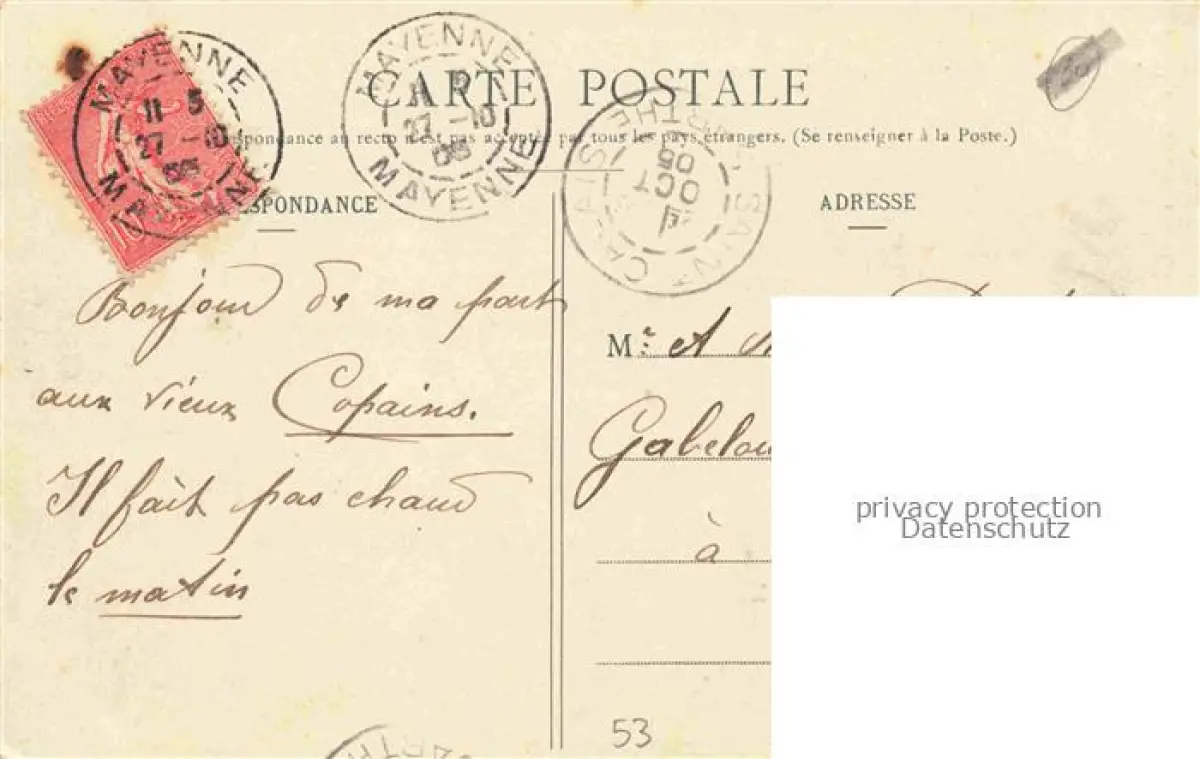 CARTE POSTALE
spondance au recto n'est pas acceptée par tous les pays étrangers. (Se renseigner à la Poste.)
SPONDANCE
ADRESSE
MAYENNE
11 5
27 -10
MAYENNE
MAYENNE
27 -10
05
MAYENNE
OCT
05
10
Bonjour de ma part
aux vieux Copains.
Il fait pas chaud
le matin
Mr: A
Gabelou
à
privacy protection
Datenschutz
53